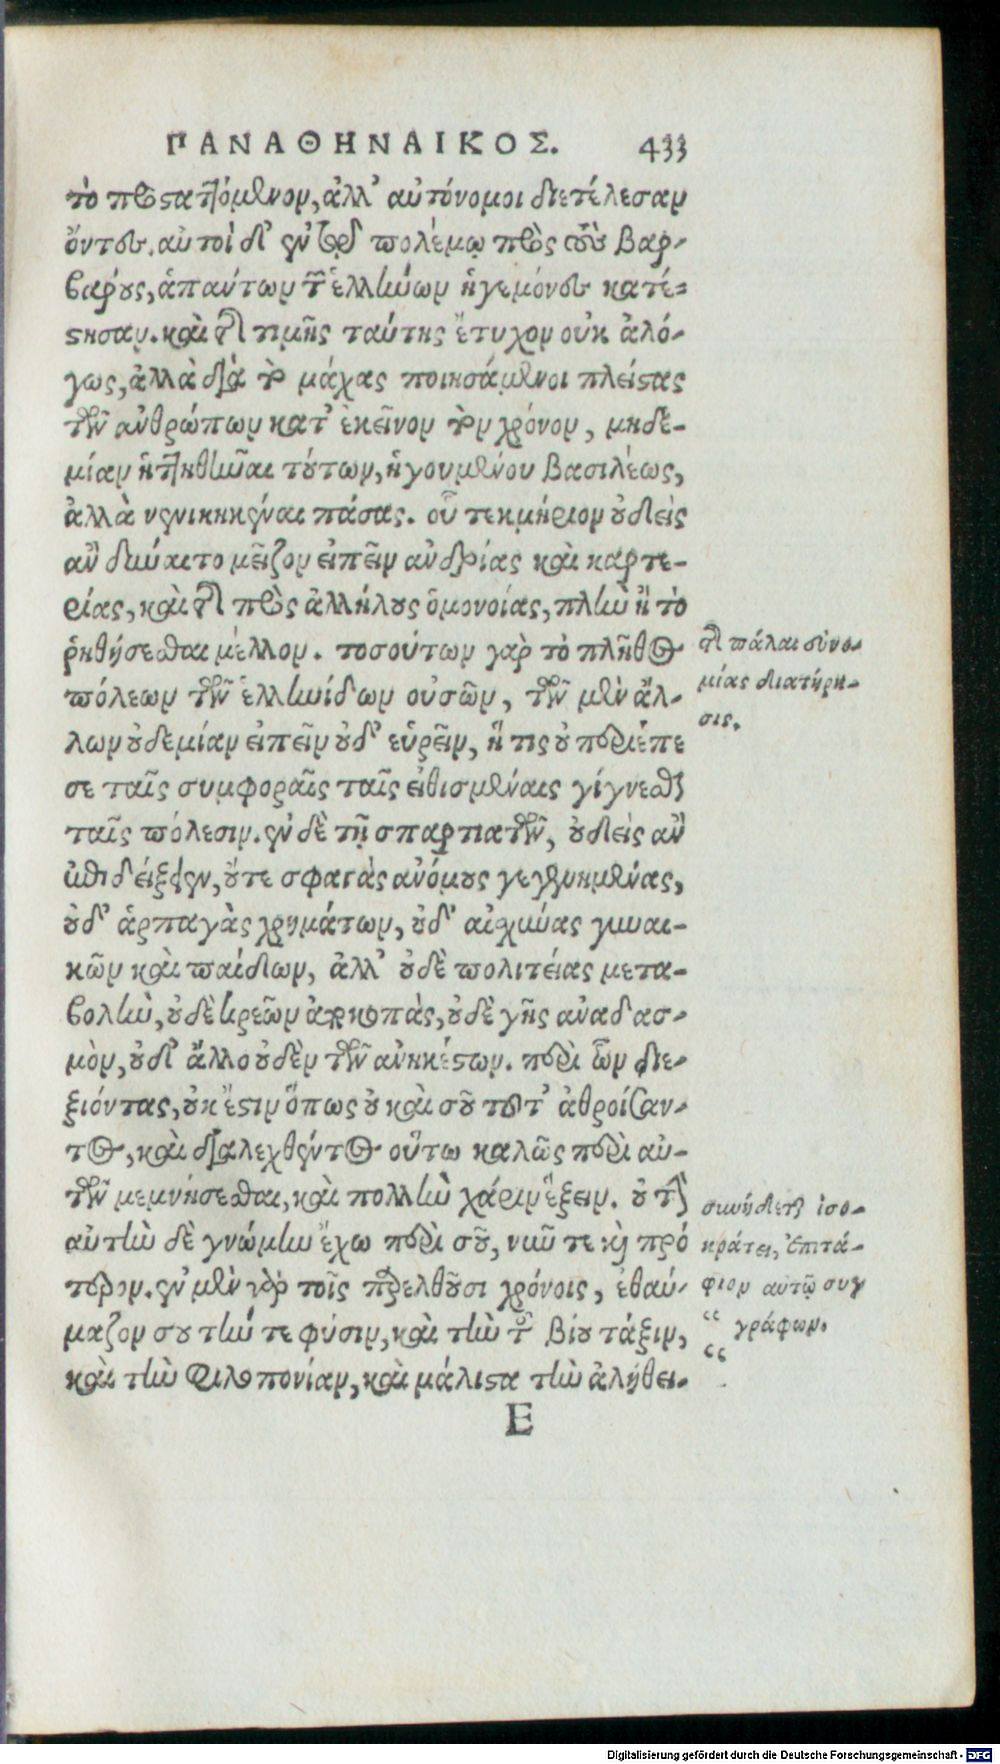 ΠΑΝΑΘΗΝΑΙΚΟΣ. 433
τὸ προσταττόμενον, ἀλλ' αὐτόνομοι διετέλεσαν
ὄντες. αὐτοὶ δ' ἐν τῷ πολέμῳ πρὸς τοὺς βαρ-
βάρους, ἁπάντων τῶν ἑλλήνων ἡγεμόνες κατέ-
στησαν. καὶ τῆς τιμῆς ταύτης ἔτυχον οὐκ ἀλό-
γως, ἀλλὰ διὰ τὸ μάχας ποιησάμενοι πλείστας
τῶν ἀνθρώπων κατ' ἐκεῖνον τὸν χρόνον, μηδε-
μίαν ἡττηθῆναι τούτων, ἡγουμένου βασιλέως,
ἀλλὰ νενικηκέναι πάσας. οὗ τεκμήριον οὐδεὶς
ἂν δύναιτο μεῖζον εἰπεῖν ἀνδρίας καὶ καρτε-
ρίας, καὶ τῆς πρὸς ἀλλήλους ὁμονοίας, πλὴν ἢ τὸ
ῥηθήσεσθαι μέλλον. τοσούτων γὰρ τὸ πλῆθος
πόλεων τῶν ἑλληνίδων οὐσῶν, τῶν μὲν ἄλ-
λων οὐδεμίαν εἰπεῖν οὐδ' εὑρεῖν, ἥ τις οὐ περιέπε
σε ταῖς συμφοραῖς ταῖς εἰθισμέναις γίγνεσθαι
ταῖς πόλεσιν. ἐν δὲ τῇ σπαρτιατῶν, οὐδεὶς ἂν
ἐπιδείξειεν, οὔτε σφαγὰς ἀνόμους γεγενημένας,
οὐδ' ἁρπαγὰς χρημάτων, οὐδ' αἰσχύνας γυναι-
κῶν καὶ παίδων, ἀλλ' οὐδὲ πολιτείας μετα-
βολὴν, οὐδὲ χρεῶν ἀποκοπὰς, οὐδὲ γῆς ἀναδασ-
μὸν, οὐδ' ἄλλο οὐδὲν τῶν ἀνηκέστων. περὶ ὧν διε-
ξιόντας, οὐκ ἔστιν ὅπως οὐ καὶ σοῦ τοῦτ' ἀθροίσαν-
τος, καὶ διαλεχθέντος οὕτω καλῶς περὶ αὐ-
τῶν μεμνήσεσθαι, καὶ πολλὴν χάριν ἕξειν. οὐ τὴν
αὐτὴν δὲ γνώμην ἔχω περὶ σοῦ, νῦν τε καὶ πρό
τερον. ἐν μὲν γὰρ τοῖς παρελθοῦσι χρόνοις, ἐθαύ-
μαζον σου τήν τε φύσιν, καὶ τὴν τοῦ βίου τάξιν,
καὶ τὴν φιλοπονίαν, καὶ μάλιστα τὴν ἀλήθει-
E
τῆς πάλαι εὐνο-
μίας διατήρη-
σις.
συνήδεται ἰσο-
κράτει, ἐπιτά-
φιον αὐτῷ συγ
“ γράφων.
“
Digitalisierung gefördert durch die Deutsche Forschungsgemeinschaft - DFG